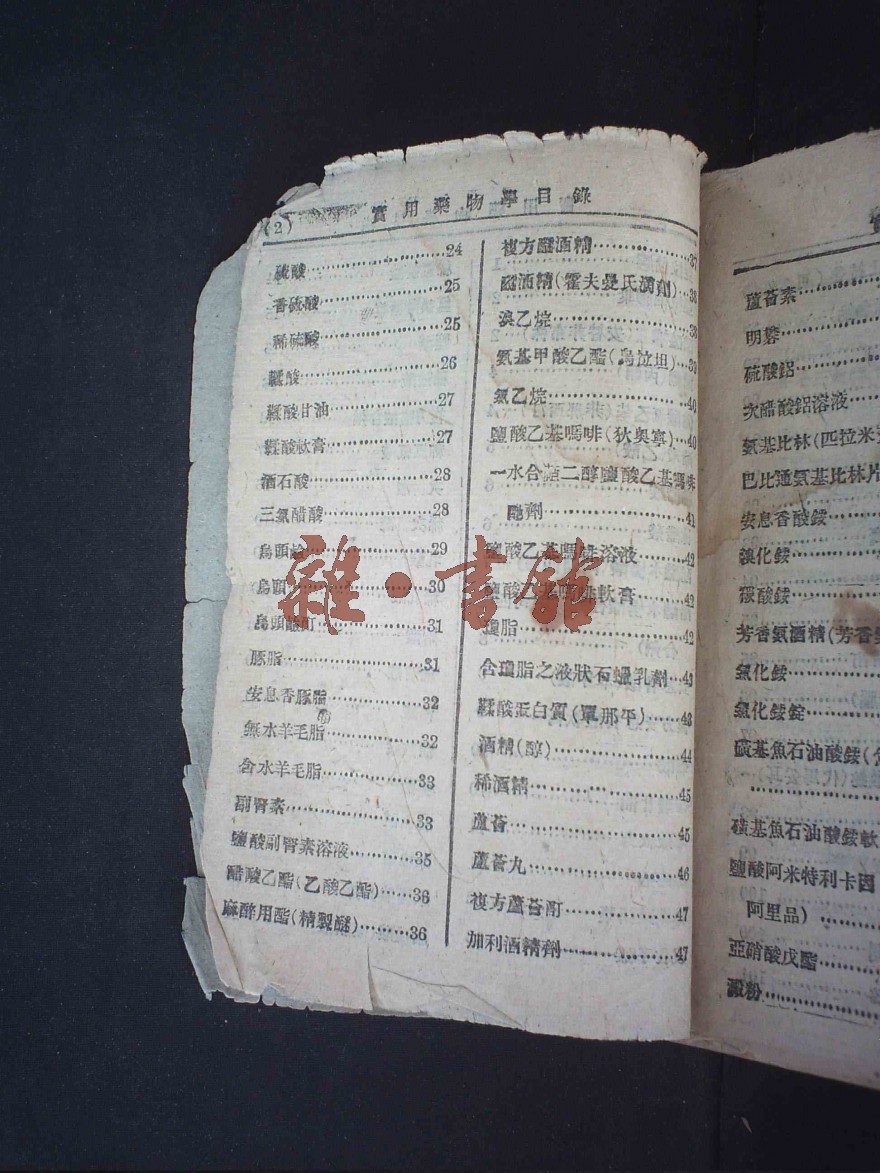 (2)
實用藥物學目錄
硫酸……………24
香硫酸……………25
稀硫酸……………25
鞣酸……………26
鞣酸甘油……………27
鞣酸軟膏……………27
酒石酸……………28
三氯醋酸……………28
烏頭鹼……………29
烏頭……………30
烏頭酸酊……………31
豚脂……………31
安息香豚脂……………32
無水羊毛脂……………32
含水羊毛脂……………33
副腎素……………33
鹽酸副腎素溶液……………35
醋酸乙酯(乙酸乙酯)……36
麻醉用酯(精製醚)………36
複方醚酒精……………37
醚酒精(霍夫曼氏滴劑)…38
溴乙烷……………38
氨基甲酸乙酯(烏拉坦)…39
氯乙烷……………40
鹽酸乙基嗎啡(狄奧寧)…40
一水合萜二醇鹽酸乙基嗎啡
酏劑……………41
鹽酸乙基嗎啡溶液………42
鹽酸乙基嗎啡軟膏………42
瓊脂……………42
含瓊脂之液狀石蠟乳劑…43
鞣酸蛋白質(單那平)……43
酒精(醇)……………44
稀酒精……………45
蘆薈……………45
蘆薈丸……………46
複方蘆薈酊……………47
加利酒精劑……………47
雜·書館
蘆薈素……………
明礬……………
硫酸鋁……………
次醋酸鋁溶液……
氨基比林(匹拉米
巴比通氨基比林片
安息香酸銨……
溴化銨……………
碳酸銨……………
芳香氨酒精(芳香
氯化銨……………
氯化銨錠……………
磺基魚石油酸銨(
磺基魚石油酸銨軟
鹽酸阿米特利卡因
阿里品)……………
亞硝酸戊酯……………
澱粉……………